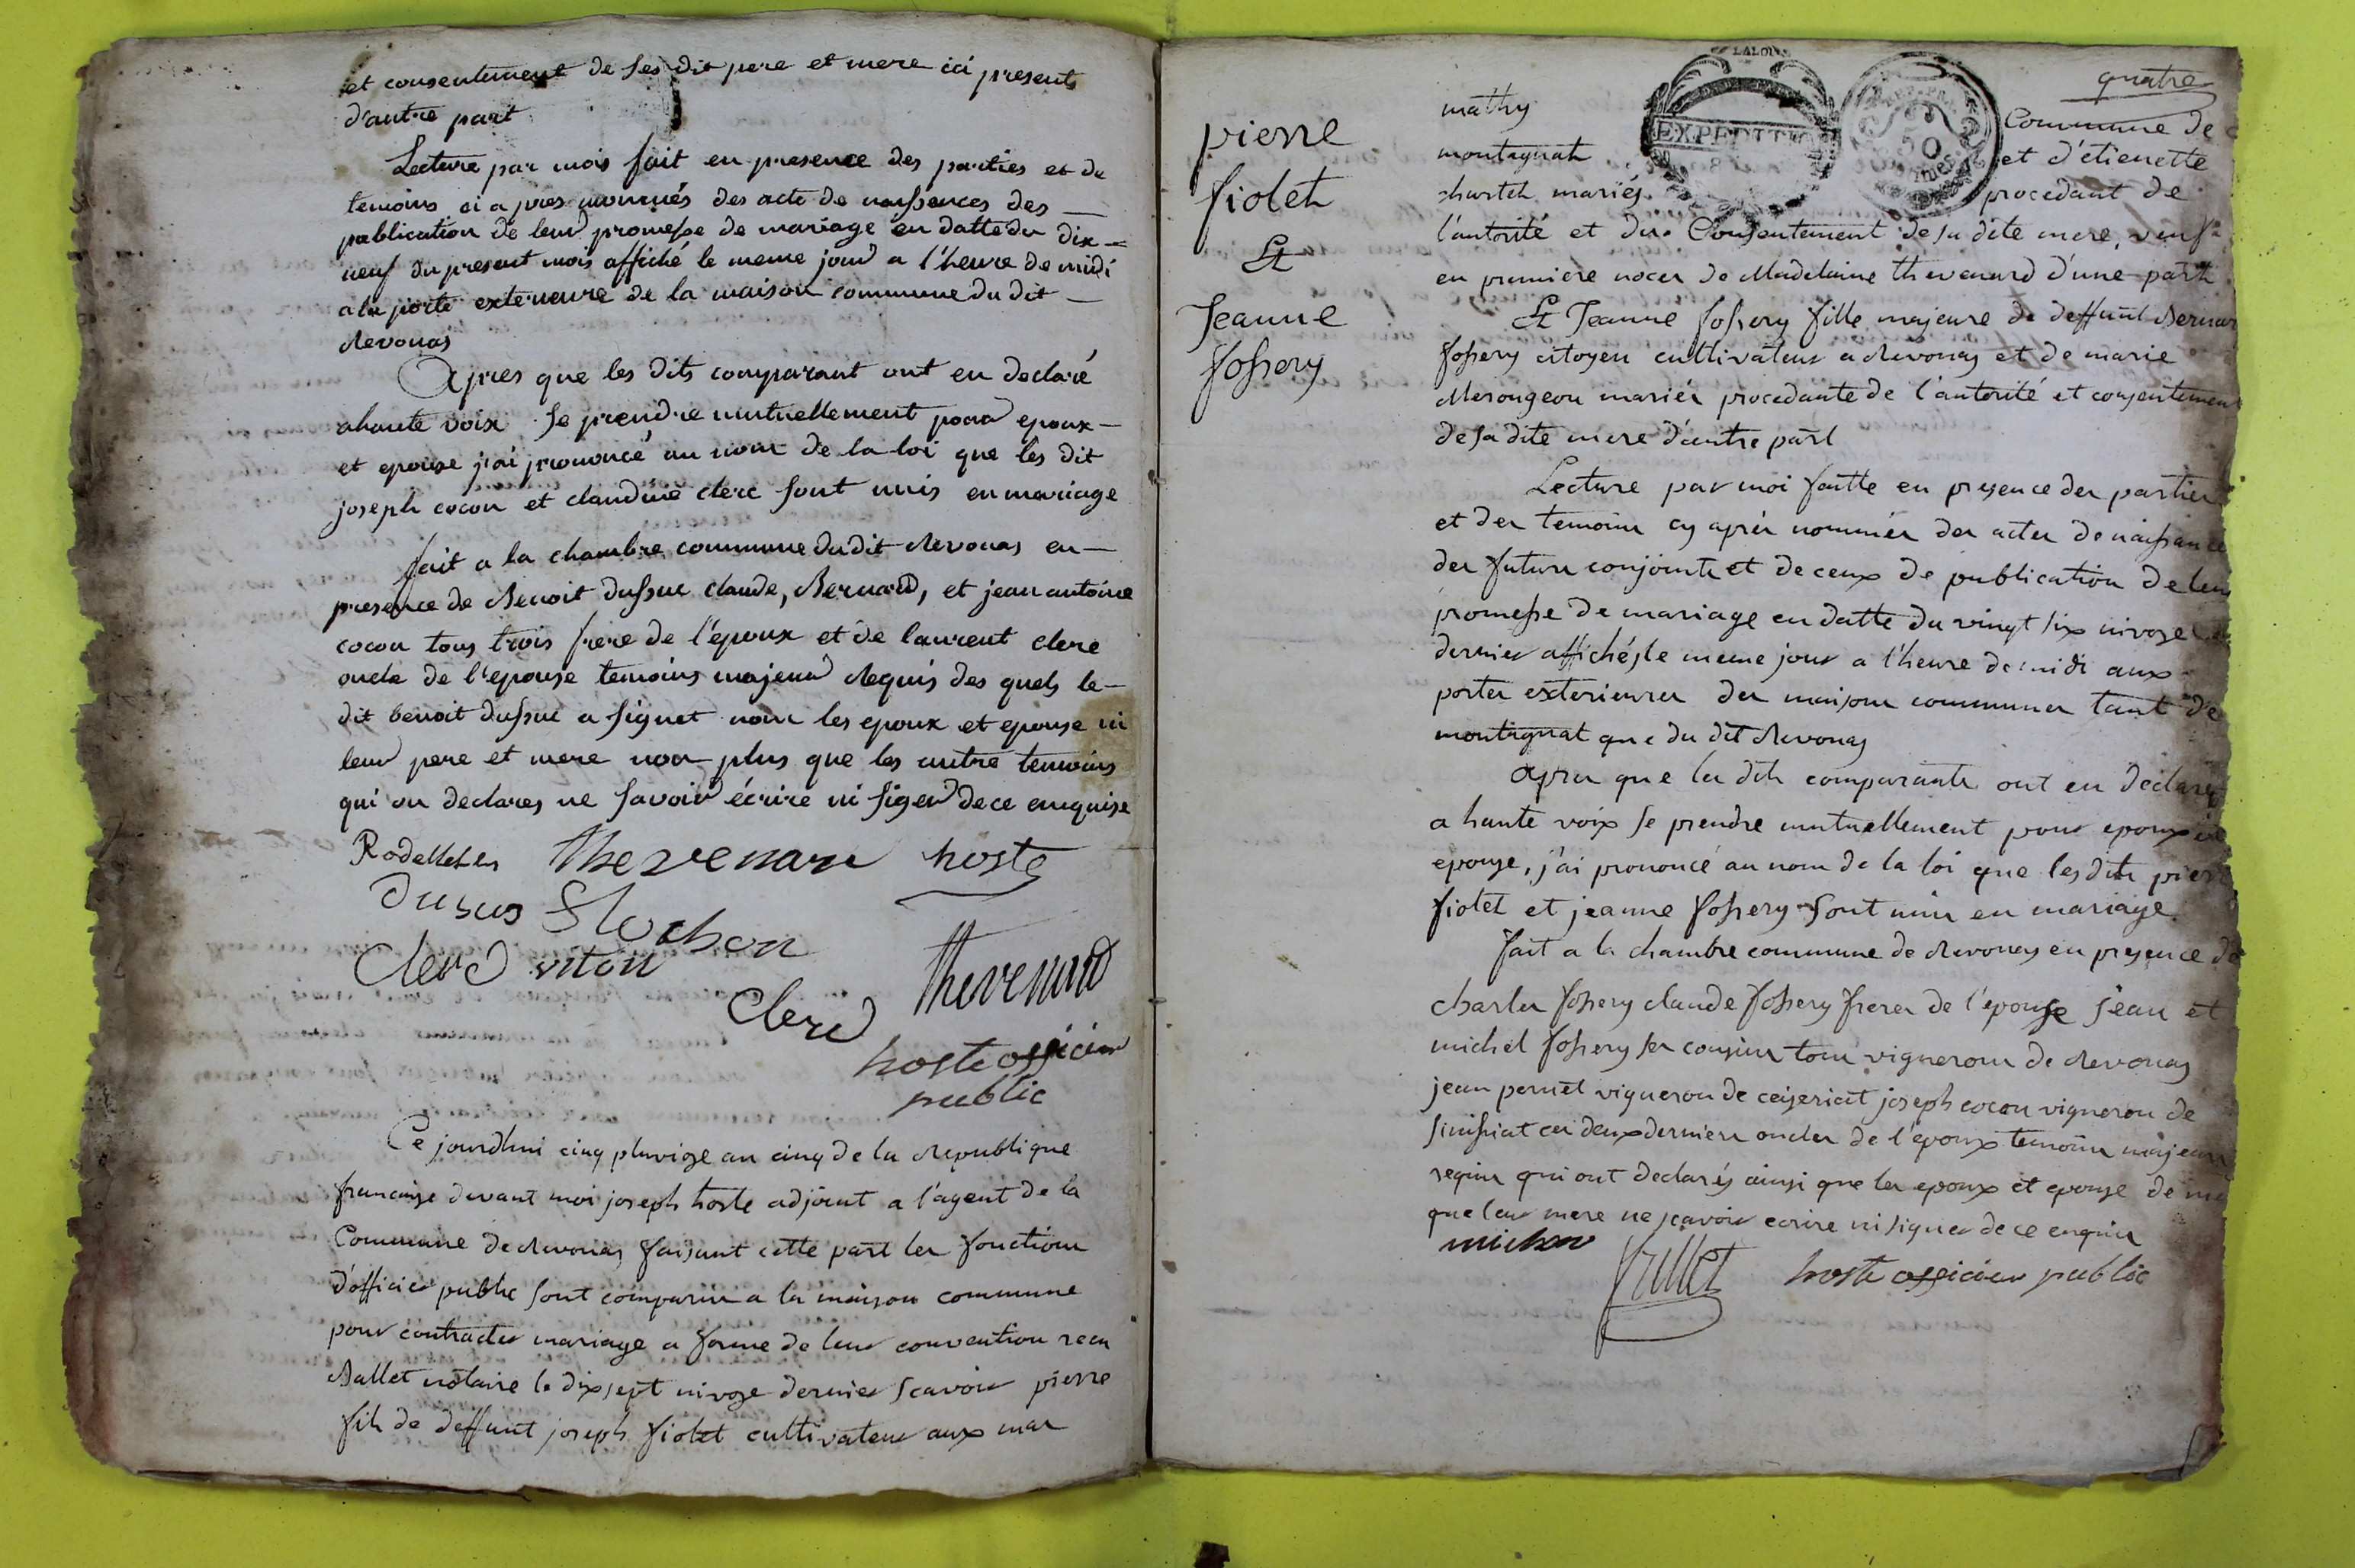 et consentement de ses dit pere et mere ici presents
d'autre part
Lecture par mois fait en presence des parties et de
temoins ci apres nommés des acte de naissences des
publication de leur promesse de mariage en datte du dix
neuf du present mois affiché le meme jour a l'heure de midi
a la porte exterieure de la maison commune du dit
Revonas
Apres que les dits comparant ont eu declaré
a haute voix se prendre mutuellement pour epoux
et epouse j'ai prononcé au nom de la loi que les dit
joseph cocon et claudine clerc sont unis en mariage
fait a la chambre commune du dit Revonas en
presence de Benoit dussuc claude, Bernard, et jean antoine
cocon tous trois frere de l'epoux et de laurent clerc
oncle de l'epouse temoins majeur Requis des quels le
dit benoit dussuc a signet non les epoux et epouse ni
leur pere et mere non plus que les autre temoins
qui on declares ne savoir écrire ni siger de ce enquise
Thevenard hoste
dusus Flochon
Clerd viton
Thevenard
Clerd
hoste officier
public
Ce jourdhui cinq pluviose an cinq de la Republique
francaise devant moi joseph hoste adjoint a l'agent de la
Commune de Revonas faisant cette part les fonctions
d'officier public sont comparus a la maison commune
pour contracter mariage a forme de leur convention recu
Ballet notaire le dix sept nivose dernier scavoir pierre
fils de deffunt joseph fiolet cultivateur aux mar
quatre
mathy EXPEDITION 50 Commune de
montagnat et d'étienette
mariés procedant de
l'autorité et du Consentement de sa dite mere, veuf
en premiere noces de Madelaine thevenard d'une part
pierre
fiolet
Et
Jeanne
fossery
Et Jeanne fossery fille majeure de deffunt Bernar
fossery citoyen cultivateur a Revonas et de marie
Merongeon mariés procedante de l'autorité et consentement
de sa dite mere d'autre part
Lecture par moi faitte en presence des parties
et des temoins cy après nommés des actes de naissance
des futurs conjoints et de ceux de publication de leur
promesse de mariage en datte du vingt six nivose
dernier affichés le meme jour a l'heure de midi aux
portes exterieures des maisons communes tant de
montagnat que du dit Revonas
apres que les dits comparants ont eu declaré
a haute voix se prendre mutuellement pour epoux et
epouse, j'ai prononcé au nom de la loi que les dits pierre
fiolet et jeanne fossery sont unis en mariage.
fait a la chambre commune de Revonas en presence de
charles fossery claude fossery freres de l'epouse jean et
michel fossery ses cousins tous vignerons de Revonas
jean pernet vigneron de ceiseriat joseph cocon vigneron de
ces deux derniers oncles de l'epoux temoins majeurs
requis qui ont declarés ainsi que les epoux et epouse de me
que leur mere ne scavoir ecrire ni signer de ce enquis
michon
hoste officier public